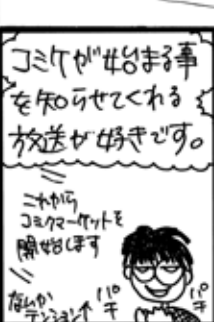 コミケが始まる事
を知らせてくれる
放送が好きです。
これから
コミックマーケットを
開始します
なんか
テンション↑
パチ
パチ